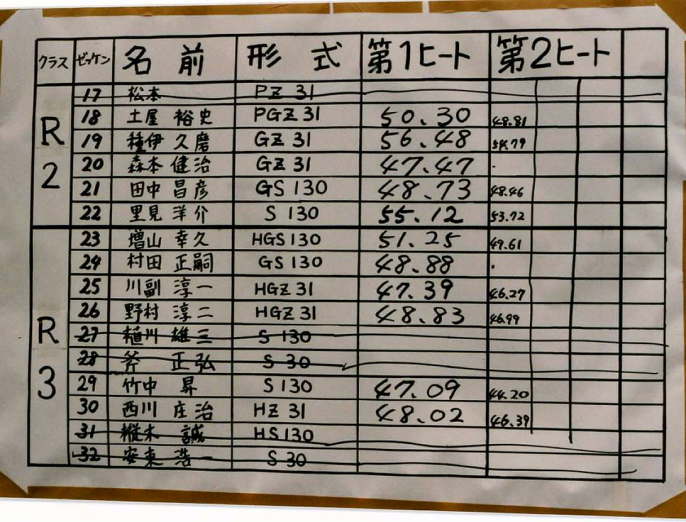 クラス ゼッケン 名前 形式 第1ヒート 第2ヒート
R2
17 松本 PZ31
18 土屋 裕史 PGZ31 50.30 48.81
19 種伊 久磨 GZ31 56.48 54.79
20 森本 健治 GZ31 47.47 .
21 田中 昌彦 GS130 48.73 48.46
22 里見 洋介 S130 55.12 53.72
R3
23 増山 幸久 HGS130 51.25 49.61
24 村田 正嗣 GS130 48.88 .
25 川副 淳一 HGZ31 47.39 46.27
26 野村 淳二 HGZ31 48.83 46.99
27 植川 雄三 S130
28 斧 正弘 S30
29 竹中 昇 S130 47.09 44.20
30 西川 庄治 HZ31 48.02 46.39
31 誠 HS130
32 安東 浩一 S30